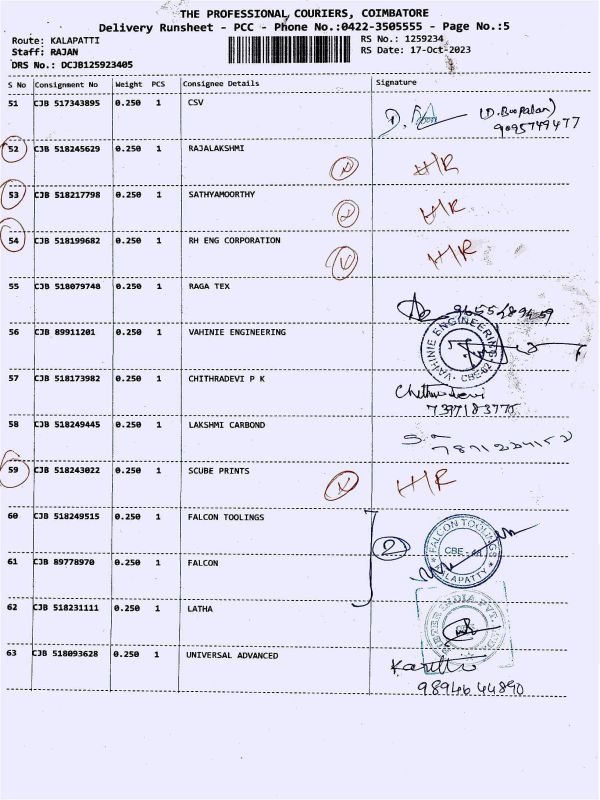 THE PROFESSIONAL COURIERS, COIMBATORE
Delivery Runsheet - PCC - Phone No.:0422-3505555 - Page No.:5
Route: KALAPATTI RS No.: 1259234
Staff: RAJAN RS Date: 17-Oct-2023
DRS No.: DCJB125923405
S No Consignment No Weight PCS Consignee Details Signature
51 CJB 517343895 0.250 1 CSV
(D. Boopalan)
9095749477
52 CJB 518245629 0.250 1 RAJALAKSHMI H/R
53 CJB 518217798 0.250 1 SATHYAMOORTHY H/R
54 CJB 518199682 0.250 1 RH ENG CORPORATION H/R
55 CJB 518079748 0.250 1 RAGA TEX
56 CJB 89911201 0.250 1 VAHINIE ENGINEERING
VAHINIE ENGINEERING
57 CJB 518173982 0.250 1 CHITHRADEVI P K
7397183775
58 CJB 518249445 0.250 1 LAKSHMI CARBOND
59 CJB 518243022 0.250 1 SCUBE PRINTS H/R
60 CJB 518249515 0.250 1 FALCON TOOLINGS
2
* FALCON TOOLINGS *
CBE - 48
61 CJB 89778970 0.250 1 FALCON
62 CJB 518231111 0.250 1 LATHA
INDIA PVT.
63 CJB 518093628 0.250 1 UNIVERSAL ADVANCED
98946 44890